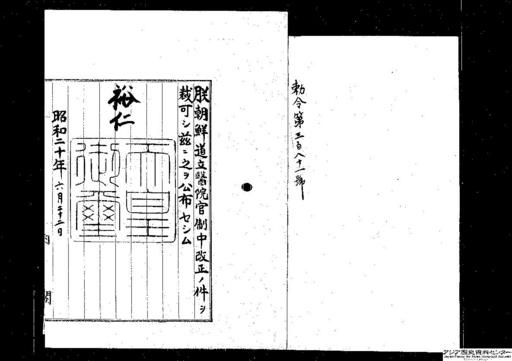 勅令第三百八十一號
朕朝鮮道立醫院官制中改正ノ件ヲ
裁可シ茲ニ之ヲ公布セシム
裕仁
天皇
御璽
昭和二十年六月二十二日
内閣
アジア歴史資料センター